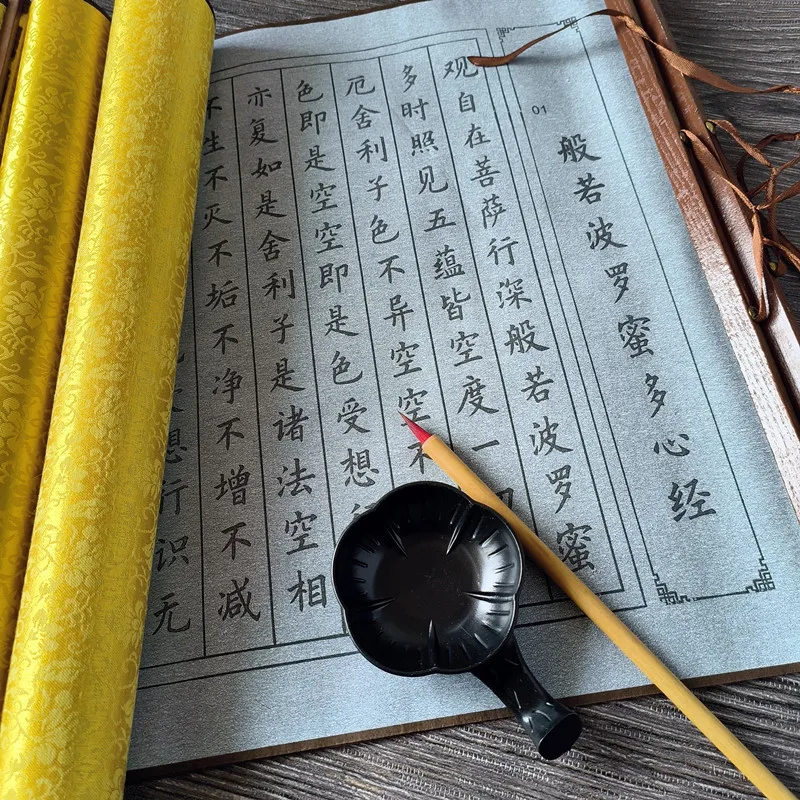 般若波罗蜜多心经
01
观自在菩萨行深般若波罗蜜
多时照见五蕴皆空度一
厄舍利子色不异空空不
色即是空空即是色受想
亦复如是舍利子是诸法空相
不生不灭不垢不净不增不减
想行识无